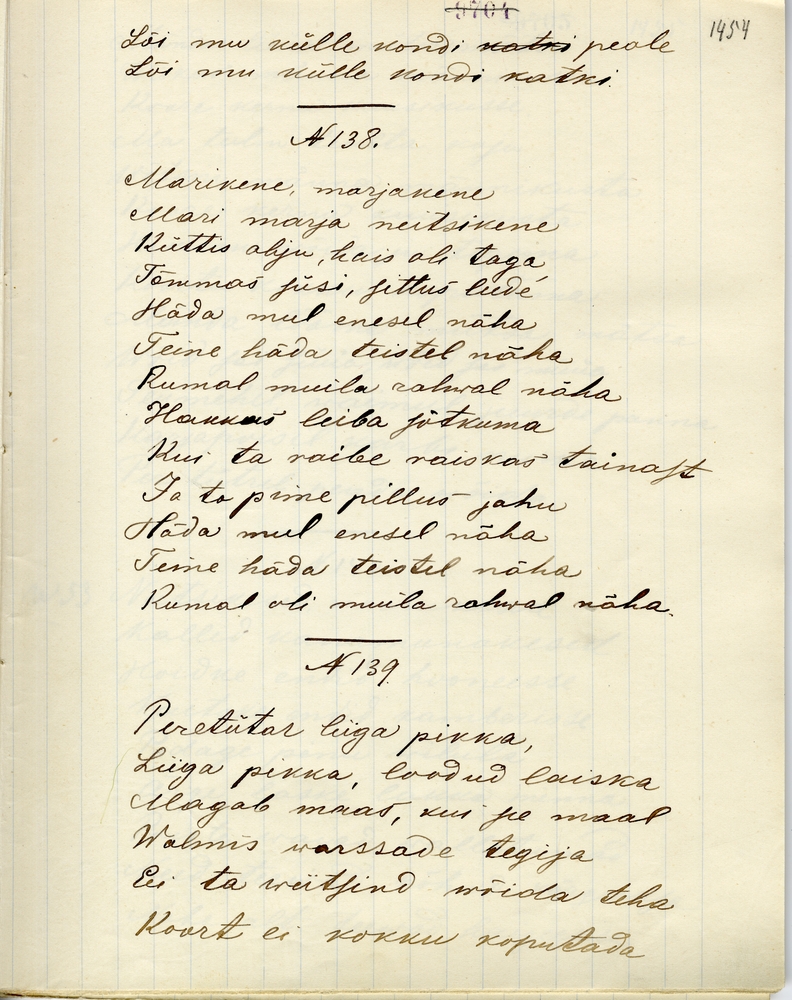 9704
1454
Lõi mu külle kondi katki peale
Lõi mu külle kondi katki.
№ 138.
Marikene, marjakene
Mari marja neitsikene
Küttis ahju, hais oli taga
Tõmmas süsi, sittus lüde
Häda mul enesel näha
Teine häda teistel näha
Rumal muila rahwal näha
Hakkas leiba sõtkuma
Kui ta raibe raiskas tainast
Ja ta pime pillus jahu
Häda mul enesel näha
Teine häda teistel näha
Rumal oli muila rahwal näha.
№ 139.
Peretütar liiga pikka,
Liiga pikka, loodud laiska
Magab maas, kui se maal
Walmis warssade tegija
Ei ta wiitsind wõida teha
Koort ei kokku koputada